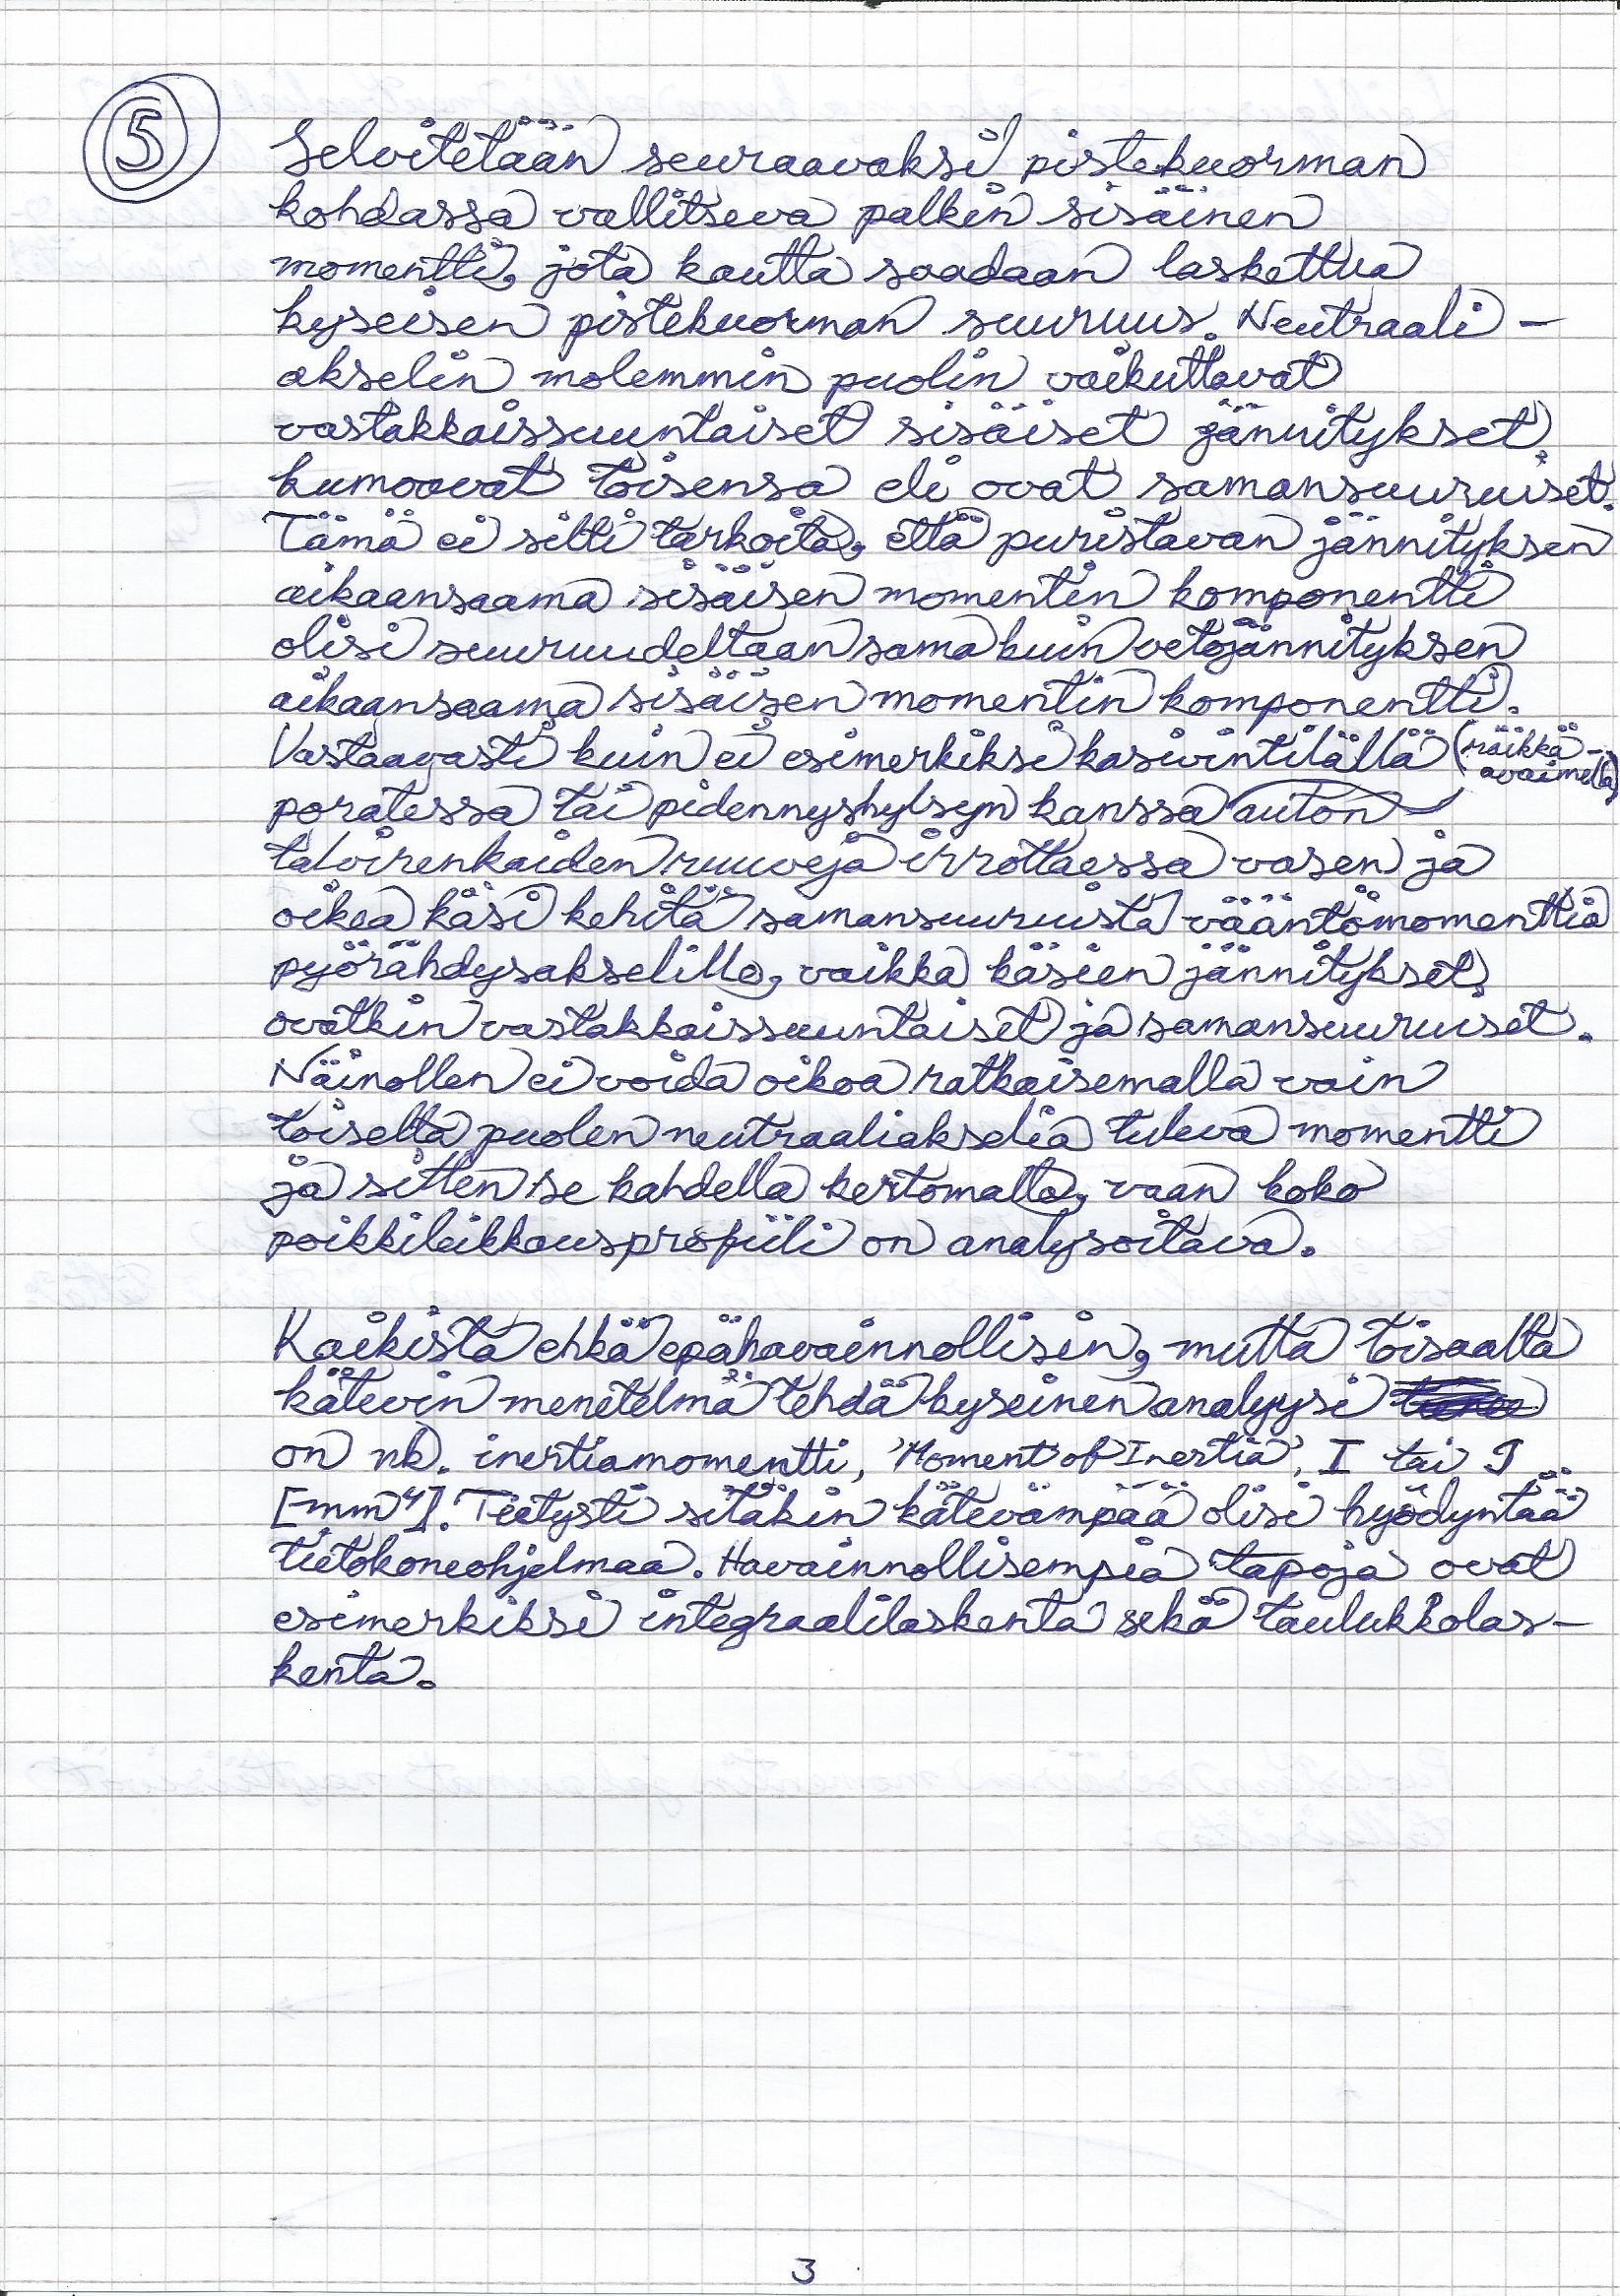 5
Selvitetään seuraavaksi pistekuorman
kohdassa vallitseva palkin sisäinen
momentti, jota kautta saadaan laskettua
kyseisen pistekuorman suuruus. Neutraali-
akselin molemmin puolin vaikuttavat
vastakkaissuuntaiset sisäiset jännitykset
kumoavat toisensa eli ovat samansuuruiset.
Tämä ei silti tarkoita, että puristavan jännityksen
aikaansaama sisäisen momentin komponentti
olisi suuruudeltaan sama kuin vetojännityksen
aikaansaama sisäisen momentin komponentti.
Vastaavasti kuin ei esimerkiksi kasivintilällä (räikkä-
avaimella)
poratessa tai pidennyshylsyn kanssa auton
talvirenkaiden ruuveja irrottaessa vasen ja
oikea käsi kehitä samansuuruista vääntömomenttia
pyörähdysakselille, vaikka käsien jännitykset
ovatkin vastakkaissuuntaiset ja samansuuruiset.
Näinollen ei voida oikoa ratkaisemalla vain
toiselta puolen neutraaliakselia tuleva momentti
ja sitten se kahdella kertomalla, vaan koko
poikkileikkausprofiili on analysoitava.
Kaikista ehkä epähavainnollisin, mutta toisaalta
kätevin menetelmä tehdä kyseinen analyysi
on nk. inertiamomentti, 'Moment of Inertia', I tai J
[mm⁴]. Tietysti sitäkin kätevämpää olisi hyödyntää
tietokoneohjelmaa. Havainnollisempia tapoja ovat
esimerkiksi integraalilaskenta sekä taulukkolas-
kenta.
3